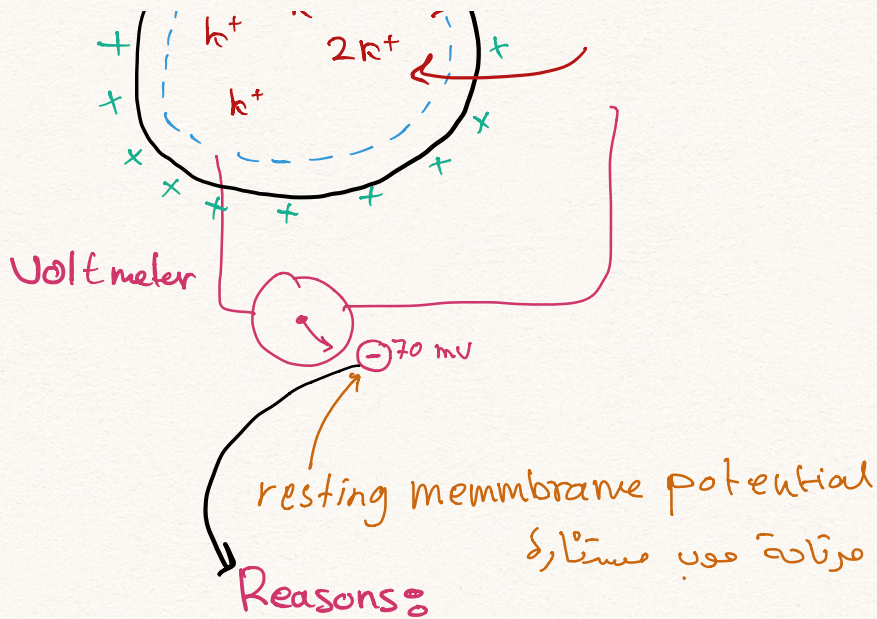 k⁺
2k⁺
k⁺
Voltmeter
⊖ 70 mv
resting memmbrane potential
مرتاحة موب مستثارة
Reasons: